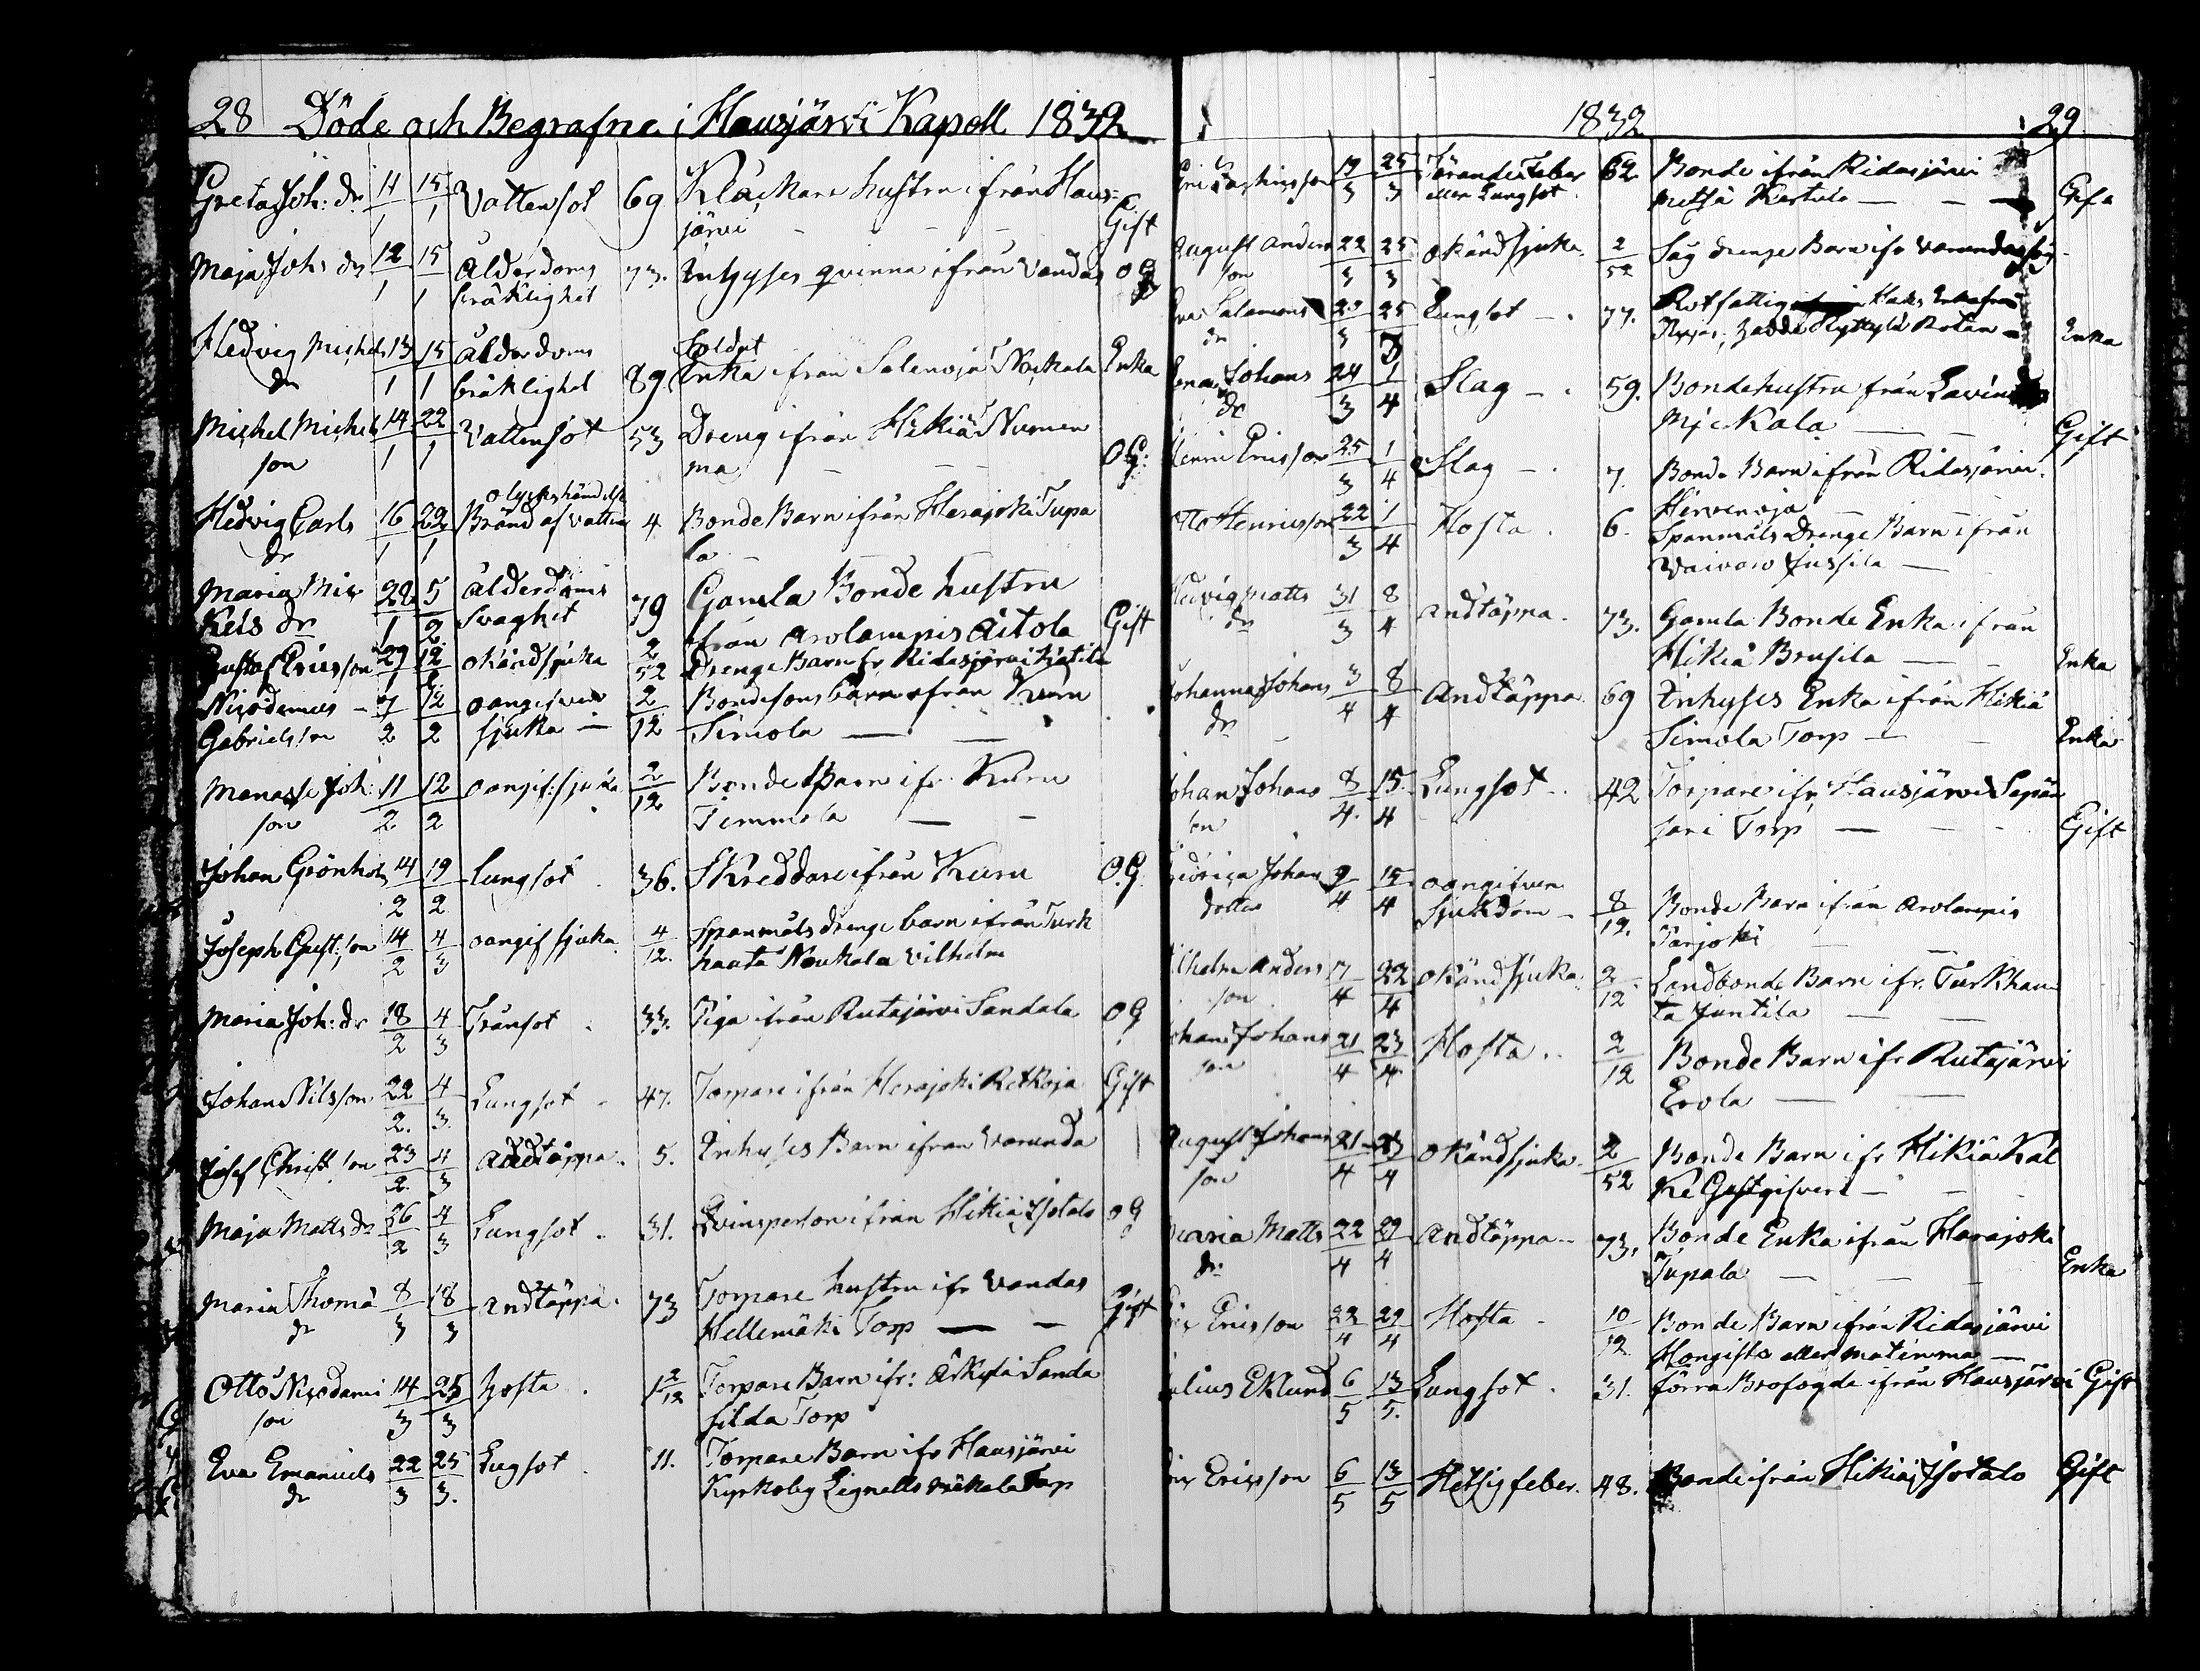 28 Döde och Begrafne i Hausjärvi Kapell 1832
Greta Joh: dr 11/1 15/1 Vattensot 69 Kläckare hustru ifrån Haus=
järvi - - - Gift
Maja Johs dr 12/1 15/1 Ålderdoms 73. Inhyses qvinna ifrån Vandas O G
bräklighet
Hedvig Michels 13/1 15/1 Ålderdoms Soldat
dr bräklighet 89 Enka ifrån Salenoja Nockala Enka
Michel Michels 14/1 22/1 Vattensot 53 Dreng ifrån Hikiä Numen
son ma - - - OG:
Hedvig Carls 16/1 29/1 olyckshändelse
Bränd af vatten 4 Bonde Barn ifrån Herajoki Tupa
dr la -
Maria Mic 28/1 5/2 ålderdoms 79 Gamla Bonde hustru
kels dr svaghet från Arolampis Äitola Gift
Gustaf Ericsson 29/1 12/2 okänd sjuka 2/52 Drenge Barn fr Ridasjärvi Hätila
Nicodemus - 7/2 12/2 oangifven 2/12 Bondesons barn ifrån Kuru
Gabrielsson sjuka - Simola — —
Manasse Joh: 11/2 12/2 oangif: sjuka 2/12 Bonde Barn ifr Kuru
son Timmola — -
Johan Grönholm 14/2 19/2 Lungsot 36. Skreddare ifrån Kuru O.G
Joseph Gust: son 14/2 4/3 oangif sjuka 4/12. Spanmåls drenge barn ifrån Turk
hauta Noukala Vilhelm
Maria Joh: dr 18/2 4/3 Tränsot 33. Piga ifrån Rutajärvi Sandala O G
Johan Nilsson 22/2 4/3 Lungsot - 47. Torpare ifrån Herajoki Retkoja Gift
Josef Christ: son 23/2 4/3 Andtäppa. 5. Inhyses Barn ifran Varunda
Maja Matts dr 26/2 4/3 Lungsot . 31. Qvinsperson ifrån Hikiä Isotalo O G
Maria Thomä 8/3 18/3 andtäppa. 73 Torpare hustru ifr Vandas
dr Hellemäki Torp — — Gift
Otto Nicodemi 14/3 25/3 hosta . 1 2/12 Torpare Barn ifr: Erkylä Sanda
son silda Torp
Eva Emanuels 22/3 25/3 Lugsot . 11. Torpare Barn ifr Hausjärvi
dr Kyrkoby Lignells Torp
1832 29
19/3 25/3 Tärande Feber 62 Bonde ifrån Ridasjärvi
eller Lungsot. Metsä Kertula — - — Gift
August Anders 22/3 25/3 okänd sjuka. 2/52 Såg drenge Barn ifr Varunda såg
son
Eva Salomons 23/3 25/3 Lungsot - . 77. Rotfattig Enka från
dr Ryttylä Rotan - Enka
Lena Johans 24/3 1/4 Slag - . 59. Bondehustru från Lavin
dr Mickala — — Gift
Henric Ericsson 25/3 1/4 Slag - . 7. Bonde Barn ifrån Ridasjärvi.
Hirvenoja —
Otto Henricsson 22/3 1/4 Hosta . 6. Spanmåls Drenge Barn ifrån
Vaivaro Jussila —
Hedvig Matts 31/3 8/4 andtäppa. 73. Gamla Bonde Enka ifrån
dr Hikiä Brusila — - Enka
Johanna Johans 3/4 8/4 Andtäppa 69 Inhyses Enka ifrån Hikiä
dr Simola Torp — - Enka
Johan Johans 8/4. 15/4 Lungsot . . 42 Torpare ifr Hausjärvi Sepän
son sari Torp — - - Gift
Fredrica Johans 9/4 15/4 oangifven
dotter sjukdom - 8/12. Bonde Barn ifrån Arolampis
Tarjoki — —
Vilhelm Anders 17/4 22/4 okänd sjuka. 2/12. Landbonde Barn ifr. Turkhau
son ta Juntila — —
Johan Johans 21/4 23/4 Hosta . . 2/12 Bonde Barn ifr Rutajärvi
son Erola — —
August Johans 21/4 23/4 okänd sjuka. 2/52 Bonde Barn ifr Hikiä Käl
son ki Gästgifveri - - -
Maria Matts 22/4 29/4 Andtäppa - 73. Bonde Enka ifrån Herajoki
dr Tupala — - - Enka
Eric Ericsson 22/4 29/4 Hosta - 10/12. Bonde Barn ifrån Ridasjärvi
Hongisto eller Matinma —
Julius Eklund 6/5 13/5. Lungsot . 31. förra Brofogde ifrån Hausjärvi Gift
Eric Ericsson 6/5 13/5 Hetsig feber. 48. Bonde ifrån Hikiä Isotalo Gift